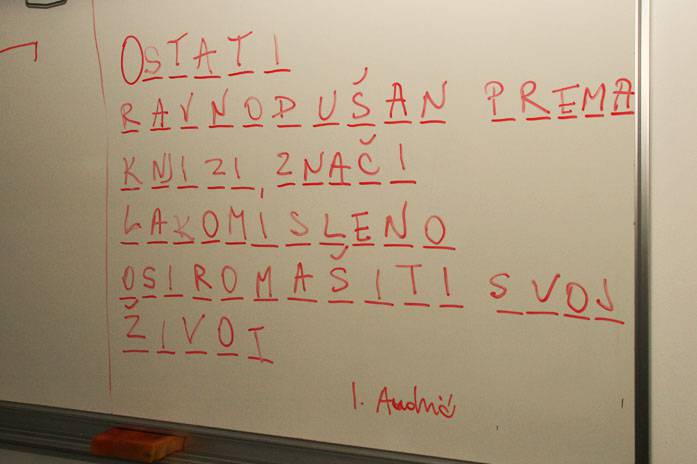 OSTATI
RAVNODUŠAN PREMA
KNJIZI, ZNAČI
LAKOMISLENO
OSIROMAŠITI SVOJ
ŽIVOT
I. Andrić